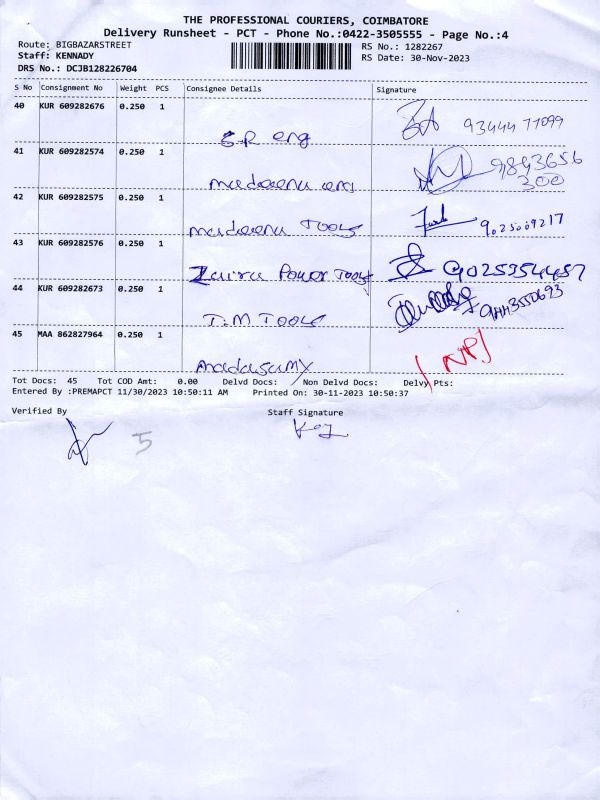 THE PROFESSIONAL COURIERS, COIMBATORE
Delivery Runsheet - PCT - Phone No.:0422-3505555 - Page No.:4
Route: BIGBAZARSTREET RS No.: 1282267
Staff: KENNADY RS Date: 30-Nov-2023
DRS No.: DCJB128226704
S No Consignment No Weight PCS Consignee Details Signature
40 KUR 609282676 0.250 1
S.R eng 93444 77099
41 KUR 609282574 0.250 1 9843656
300
42 KUR 609282575 0.250 1
TOOLS 9025009217
43 KUR 609282576 0.250 1
Power TOOLS 9025354487
44 KUR 609282673 0.250 1
T.M TOOLS
45 MAA 862827964 0.250 1
madasamy
Tot Docs: 45 Tot COD Amt: 0.00 Delvd Docs: Non Delvd Docs: Delvy Pts:
Entered By :PREMAPCT 11/30/2023 10:50:11 AM Printed On: 30-11-2023 10:50:37
Verified By Staff Signature
5